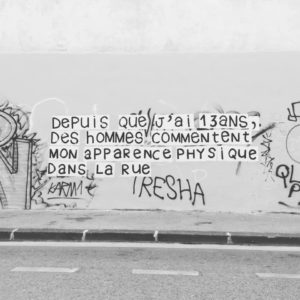 DEPUIS QUE J'AI 13 ANS,
DES HOMMES COMMENTENT
MON APPARENCE PHYSIQUE
DANS LA RUE
KARIM
IRESHA